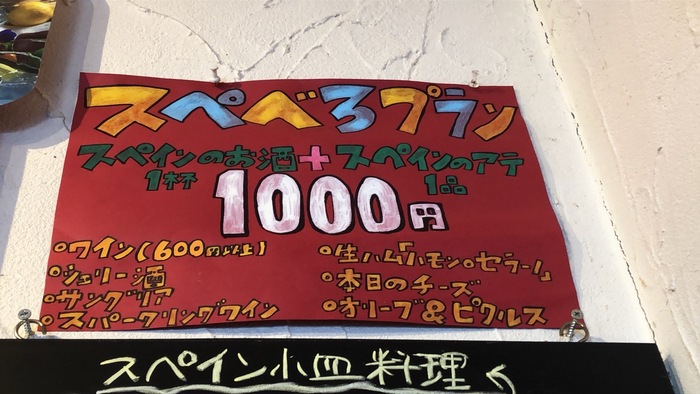 スペベろプラン
スペインのお酒+スペインのアテ
1杯 1品
1000円
○ワイン(600円以上)
○シェリー酒
○サングリア
○スパークリングワイン
○生ハム「ハモン○セラーノ」
○本日のチーズ
○オリーブ&ピクルス
スペイン小皿料理